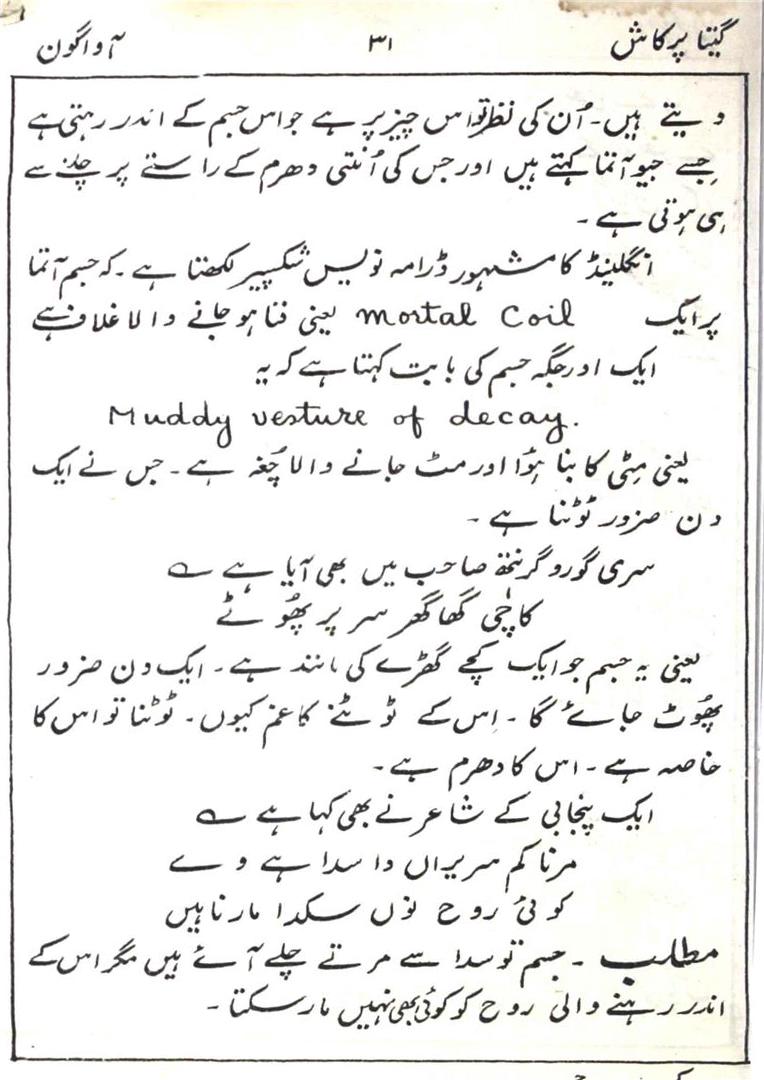 گیتا پرکاش ۳۱ آواگون
دیتے ہیں۔ اُن کی نظر تو اس چیز پر ہے جو اس جسم کے اندر رہتی ہے
جِسے جیو آتما کہتے ہیں اور جس کی اُنتی دھرم کے راستے پر چلنے سے
ہی ہوتی ہے۔
انگلینڈ کا مشہور ڈرامہ نویس شکسپیر لکھتا ہے۔ کہ جسم آتما
پر ایک mortal Coil یعنی فنا ہو جانے والا غلاف ہے
ایک اور جگہ جسم کی بابت کہتا ہے کہ یہ
Muddy vesture of decay.
یعنی مِٹی کا بنا ہؤا اور مٹ جانے والا چُغہ ہے۔ جس نے ایک
دن ضرور ٹوٹنا ہے۔
سری گورو گرنتھ صاحب میں بھی آیا ہے ؎
کاچی گھاگھر سر پر پھُوٹے
یعنی یہ جسم جو ایک کچے گھڑے کی مانند ہے۔ ایک دن ضرور
پھُوٹ جائے گا۔ اِس کے ٹوٹنے کا غم کیوں۔ ٹوٹنا تو اس کا
خاصہ ہے۔ اس کا دھرم ہے۔
ایک پنجابی کے شاعر نے بھی کہا ہے ؎
مرنا کم سریراں دا سدا ہے وے
کوئی روح نوں سکدا مار ناہیں
مطلب۔ جسم تو سدا سے مرتے چلے آئے ہیں مگر اس کے
اندر رہنے والی روح کو کوئی بھی نہیں مار سکتا۔